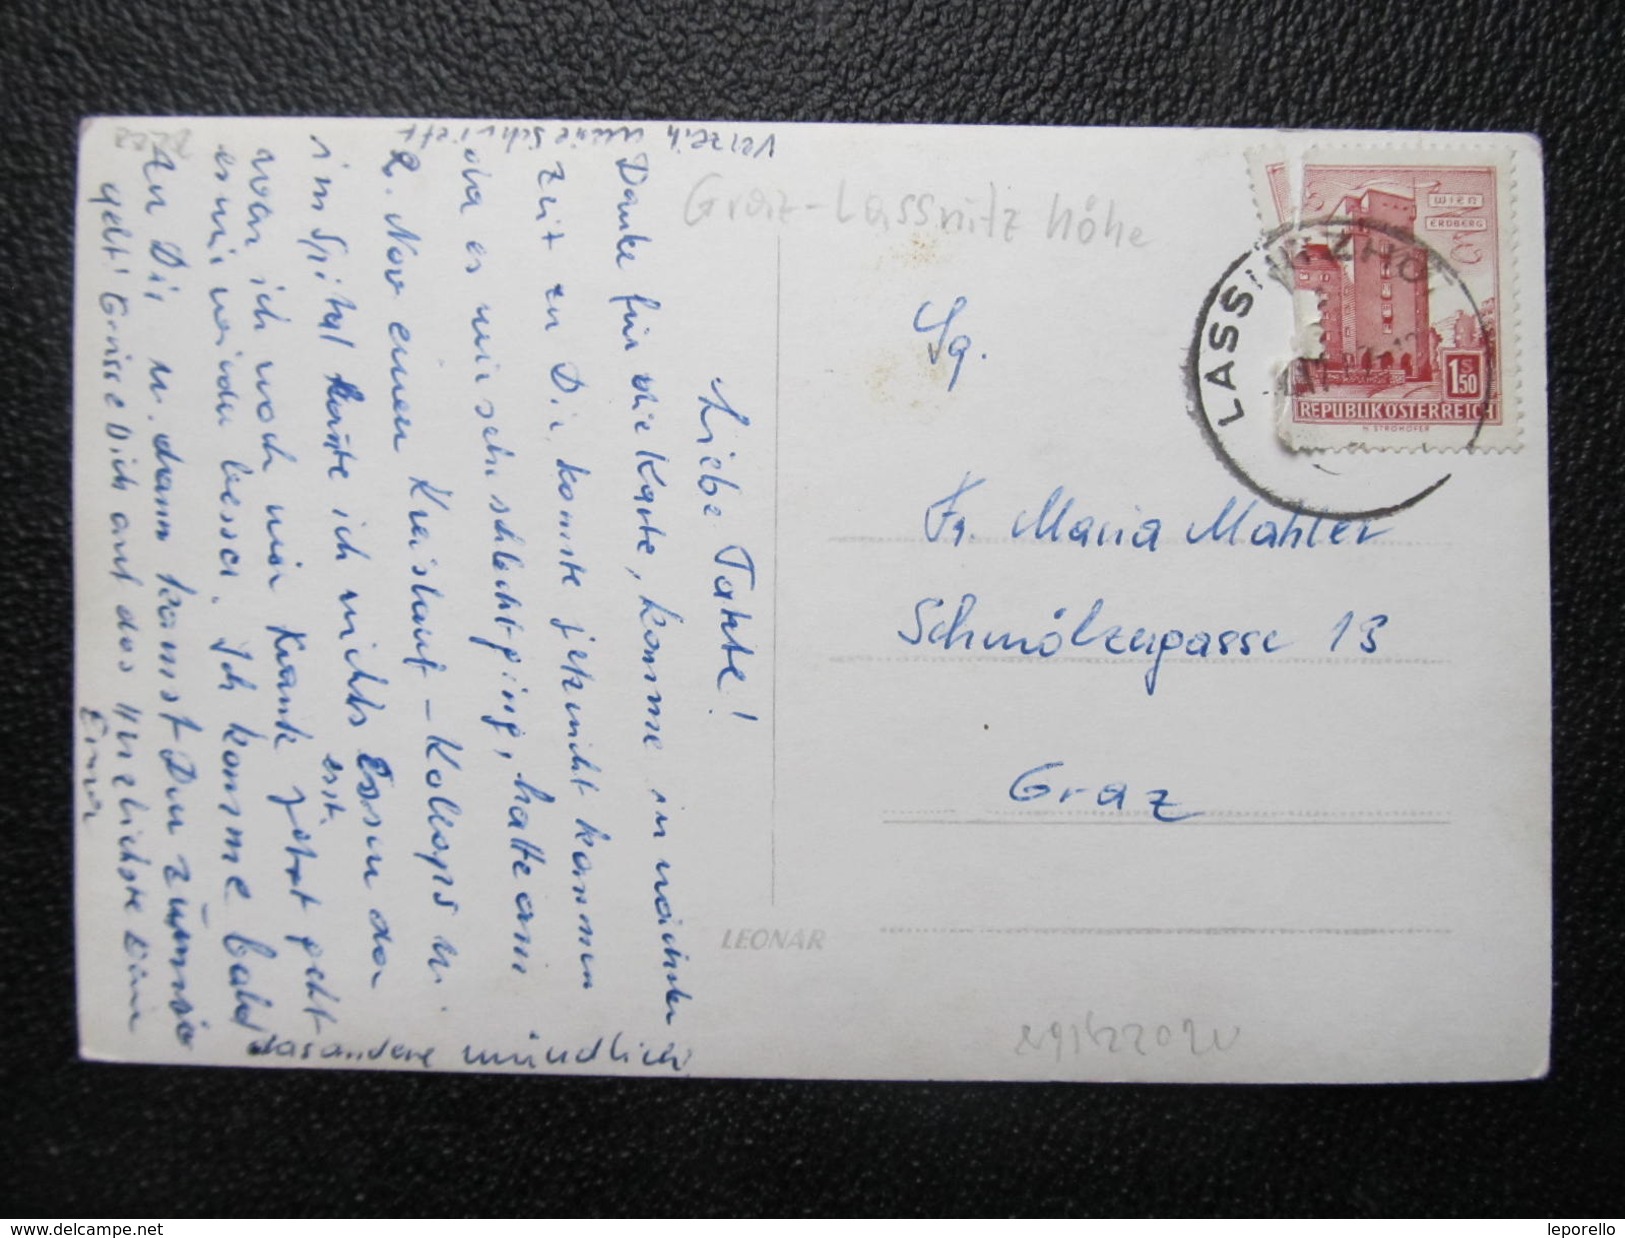 Liebe Tante!
Danke für die Karte, komme in nächster
Zeit zu Dir, konnte jetzt nicht kommen
da es mir sehr schlecht ging, hatte am
2. Nov einen Kreislauf-Kollaps u.
im Spital konnte ich nichts Essen da
war ich noch mir Krank jetzt geht
erst
es mir wieder besser. Ich komme bald
zu Dir u. dann kommst Du zu mir
gelt! Grüsse Dich auf das Herzlichste Dein
Erna
das andere mündlich
Verzeih meine Schrift
Graz-Lassnitz höhe
Sg.
Fr. Maria Mahler
Schmölzergasse 13
Graz
LEONAR
WIEN
ERDBERG
1S50
REPUBLIK ÖSTERREICH
H. STROHOFER
LASSNITZHÖ
www.delcampe.net
leporello